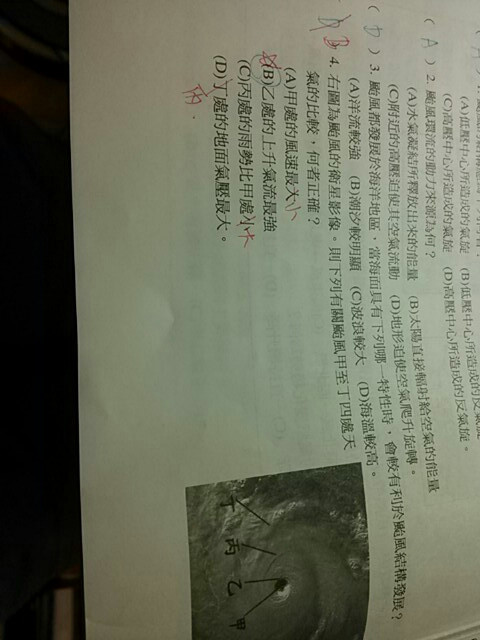 (A)低壓中心所造成的氣旋 (B)低壓中心所造成的反氣旋
(C)高壓中心所造成的氣旋 (D)高壓中心所造成的反氣旋。
( A ) 2. 颱風環流的動力來源為何？
(A)水氣凝結所釋放出來的能量 (B)太陽直接輻射給空氣的能量
(C)附近的高壓迫使其空氣流動 (D)地形迫使空氣爬升旋轉。
( D ) 3. 颱風都發展於海洋地區，當海面具有下列哪一特性時，會較有利於颱風結構發展？
(A)洋流較強 (B)潮汐較明顯 (C)波浪較大 (D)海溫較高。
D B 4. 右圖為颱風的衛星影像。則下列有關颱風甲至丁四處天
氣的比較，何者正確？
(A)甲處的風速最大小
(B)乙處的上升氣流最強
(C)丙處的雨勢比甲處小大
(D)丁處的地面氣壓最大。
丁 丙 乙 甲